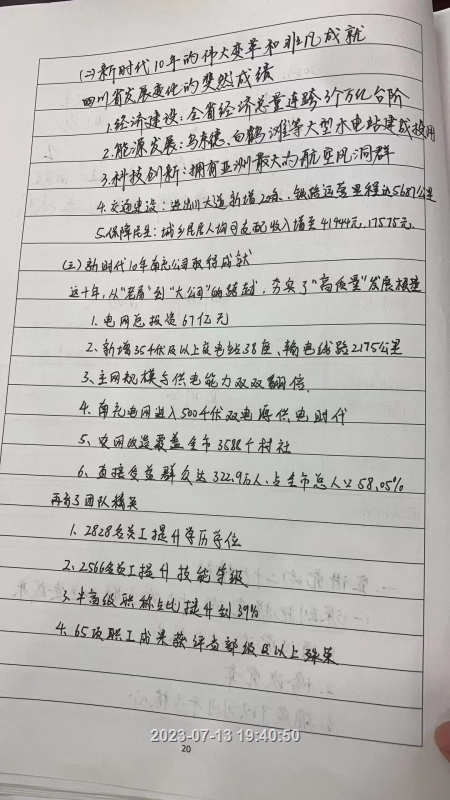 (二)新时代10年的伟大变革和非凡成就
四川省发展变化的斐然成绩
1.经济建设:全省经济总量连跨3个万亿台阶
2.能源发展:乌东德、白鹤滩等大型水电站建成投用
3.科技创新:拥有亚洲最大的航空风洞群
4.交通建设:进出川大道新增20条,铁路运营里程达5687公里
5.保障民生:城乡居民人均可支配收入增至41444元,17575元.
(三)新时代10年南充公司取得成就
这十年,从“老局”到“大公司”的跨越,夯实了“高质量”发展根基
1.电网总投资67亿元
2、新增35千伏及以上变电站38座、输电线路2175公里
3、主网规模与供电能力双双翻倍.
4.南充电网进入500千伏双电源供电时代
5、农网改造覆盖全市3588个村社
6、直接受益群众达322.9万人、占全市总人口58.05%
再有了团队精英
1.2828名员工提升学历学位
2、2566名员工提升技能等级
3.中高级职称占比提升到39%
4.65项职工成果获评省部级及以上殊荣
2023-07-13 19:40:50
20